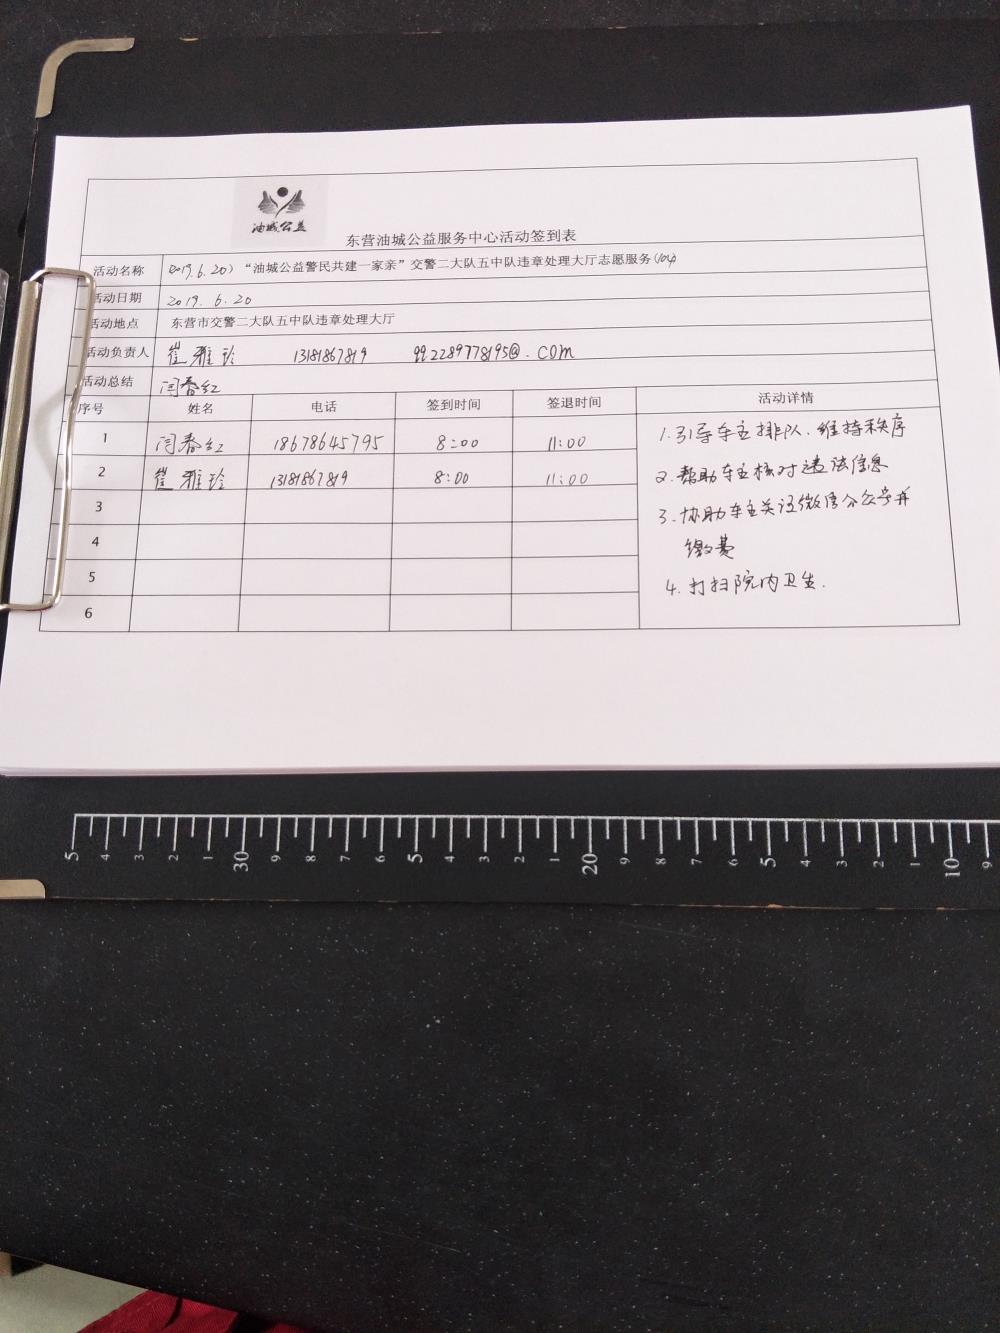 油城公益
东营油城公益服务中心活动签到表
活动名称 2019.6.20）“油城公益警民共建一家亲”交警二大队五中队违章处理大厅志愿服务(104)
活动日期 2019.6.20
活动地点 东营市交警二大队五中队违章处理大厅
活动负责人 崔雅玲 13181867819 992289778195@.com
活动总结 闫春红
序号 姓名 电话 签到时间 签退时间 活动详情
1 闫春红 18678645795 8:00 11:00
2 崔雅玲 13181867819 8:00 11:00
3
4
5
6
1.引导车主排队、维持秩序
2.帮助车主核对违法信息
3.协助车主关注微信公众号并
缴费
4.打扫院内卫生.
5 4 3 2 1 30 9 8 7 6 5 4 3 2 1 20 9 8 7 6 5 4 3 2 1 10 9